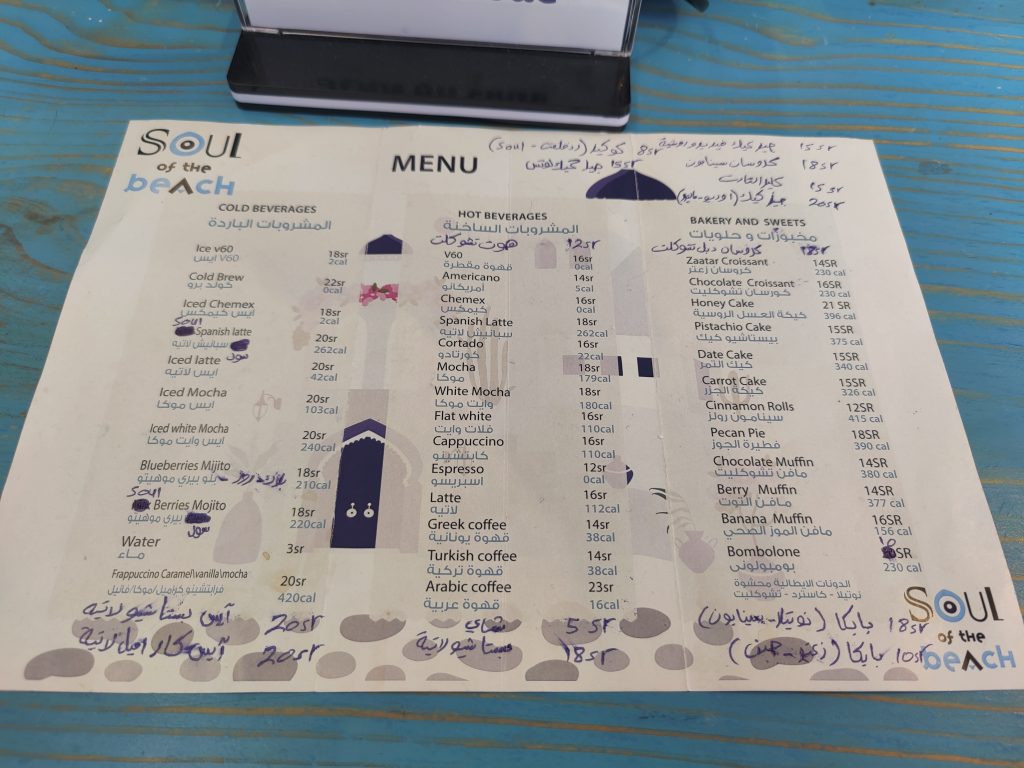 SOUL
of the
beach
MENU
كوكيز (ردفلفت - Soul) 8sr
15sr
كروسان سينامون 18sr
15sr
20sr
COLD BEVERAGES
المشروبات الباردة
Ice v60 18sr
ايس V60 2cal
Cold Brew 22sr
كولد برو 0cal
Iced Chemex 18sr
ايس كيمكس 2cal
Soul Spanish latte 20sr
سبانيش لاتيه سول 262cal
Iced latte 20sr
ايس لاتيه 42cal
Iced Mocha 20sr
ايس موكا 103cal
Iced white Mocha 20sr
ايس وايت موكا 240cal
Blueberries Mijito 18sr
بلو بيري موهيتو 210cal
Soul Berries Mojito 18sr
بيري موهيتو سول 220cal
Water 3sr
ماء
Frappuccino Caramel\vanilla\mocha 20sr
فرابتشينو كراميل/موكا/فانيل 420cal
آيس بستاشيو لاتيه 20sr
آيس كاراميل لاتية 20sr
HOT BEVERAGES
المشروبات الساخنة
هوت تشوكلت 12sr
V60 16sr
قهوة مقطرة 0cal
Americano 14sr
أمريكانو 5cal
Chemex 16sr
كيمكس 0cal
Spanish Latte 18sr
سبانيش لاتيه 262cal
Cortado 16sr
كورتادو 22cal
Mocha 18sr
موكا 179cal
White Mocha 18sr
وايت موكا 180cal
Flat white 16sr
فلات وايت 110cal
Cappuccino 16sr
كابتشينو 110cal
Espresso 12sr
اسبريسو 0cal
Latte 16sr
لاتيه 112cal
Greek coffee 14sr
قهوة يونانية 38cal
Turkish coffee 14sr
قهوة تركية 38cal
Arabic coffee 23sr
قهوة عربية 16cal
شاي 5sr
بستاشيو لاتية 18sr
BAKERY AND SWEETS
مخبوزات و حلويات
كروسان دبل تشوكلت 18sr
Zaatar Croissant 14SR
كروسان زعتر 230 cal
Chocolate Croissant 16SR
كورسان تشوكليت 230 cal
Honey Cake 21 SR
كيكة العسل الروسية 396 cal
Pistachio Cake 15SR
بيستاشيو كيك 375 cal
Date Cake 15SR
كيك التمر 340 cal
Carrot Cake 15SR
كيكة الجزر 326 cal
Cinnamon Rolls 12SR
سينامون رولز 415 cal
Pecan Pie 18SR
فطيرة الجوز 390 cal
Chocolate Muffin 14SR
مافن تشوكليت 380 cal
Berry Muffin 14SR
مافن التوت 377 cal
Banana Muffin 16SR
مافن الموز الصحي 156 cal
Bombolone 10SR
بومبولوني 230 cal
الدونات الايطالية محشوة
نوتيلا - كاسترد - تشوكليت
بابكا (نوتيلا - سينابون) 18sr
بابكا (زعتر - جبن) 10sr
SOUL
of the
beach